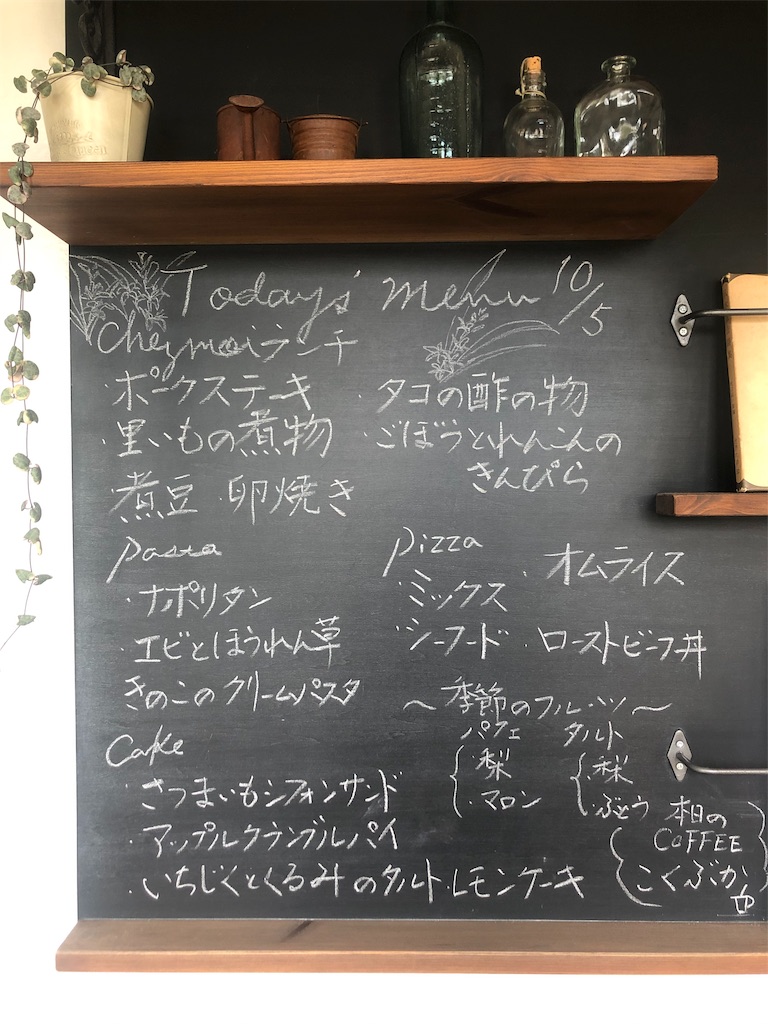 Today's menu 10/5
Chezmoiランチ
・ポークステーキ ・タコの酢の物
・里いもの煮物 ・ごぼうとれんこんの
きんぴら
・煮豆 ・卵焼き
Pasta
・ナポリタン
・エビとほうれん草
きのこのクリームパスタ
Pizza
・ミックス
・シーフード
・オムライス
・ローストビーフ丼
〜季節のフルーツ〜
パフェ タルト
・梨 ・梨
・マロン ・ぶどう
Cake
・さつまいもシフォンサンド
・アップルクランブルパイ
・いちじくとくるみのタルト・レモンケーキ
本日の
COFFEE
こくぶか